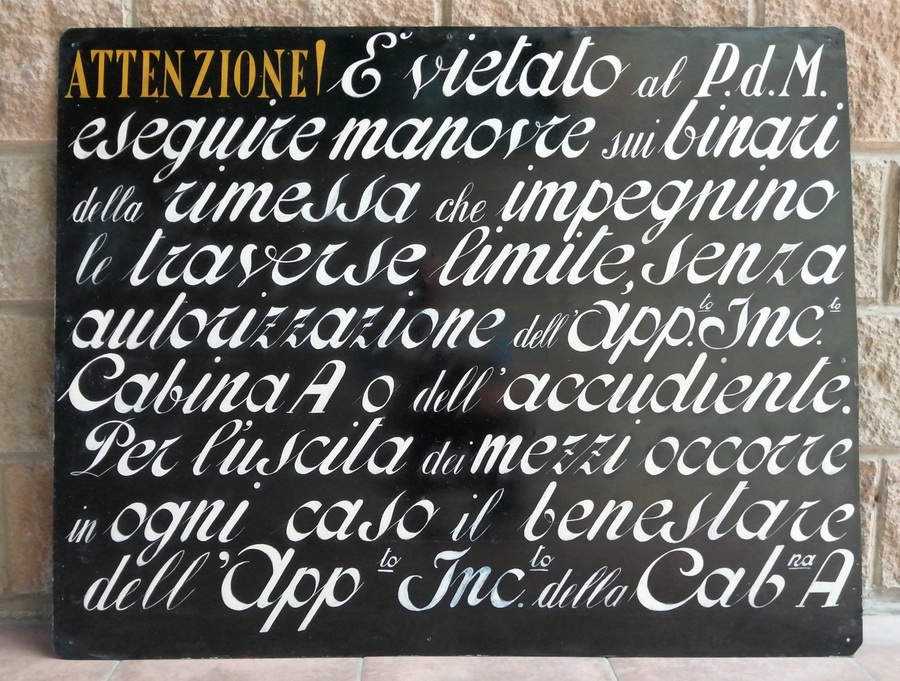 ATTENZIONE! E' vietato al P.d.M.
eseguire manovre sui binari
della rimessa che impegnino
le traverse limite, senza
autorizzazione dell'App.to Inc.to
Cabina A o dell'accudiente.
Per l'uscita dei mezzi occorre
in ogni caso il benestare
dell'App to Inc.to della Cab na A